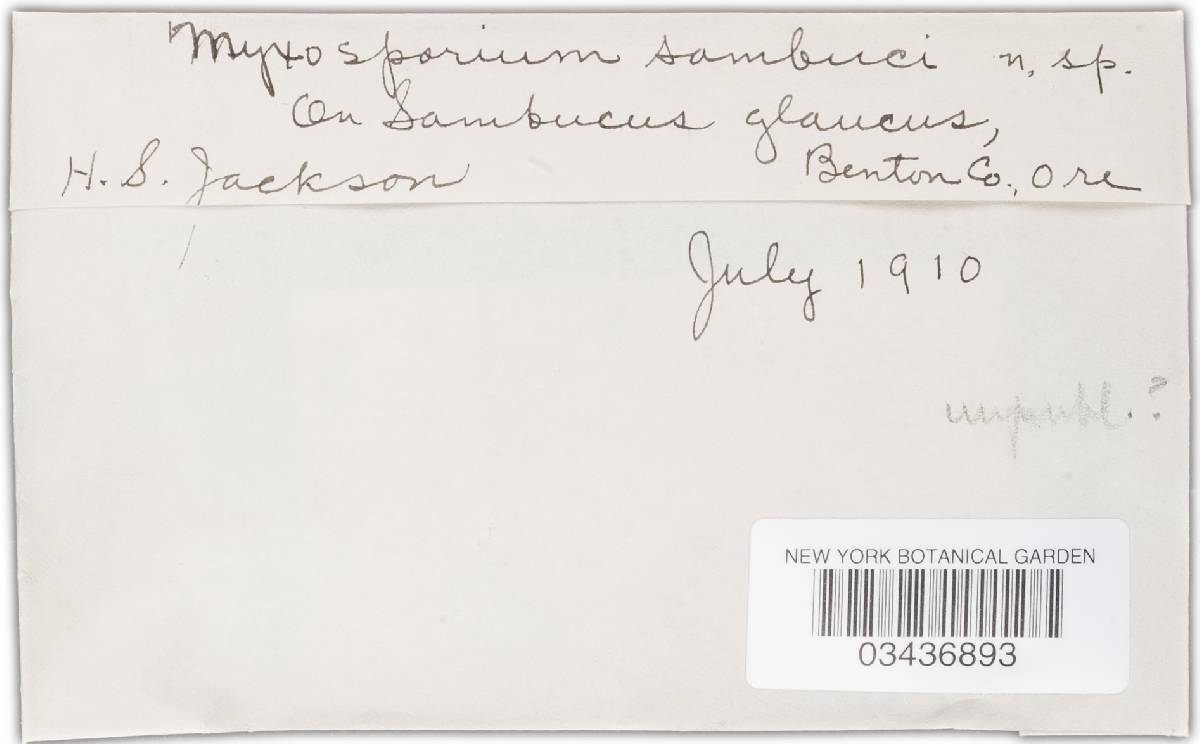 Myxosporium sambuci n. sp.
On Sambucus glaucus,
H. S. Jackson Benton Co., Ore
July 1910
unpubl. ?
NEW YORK BOTANICAL GARDEN
03436893